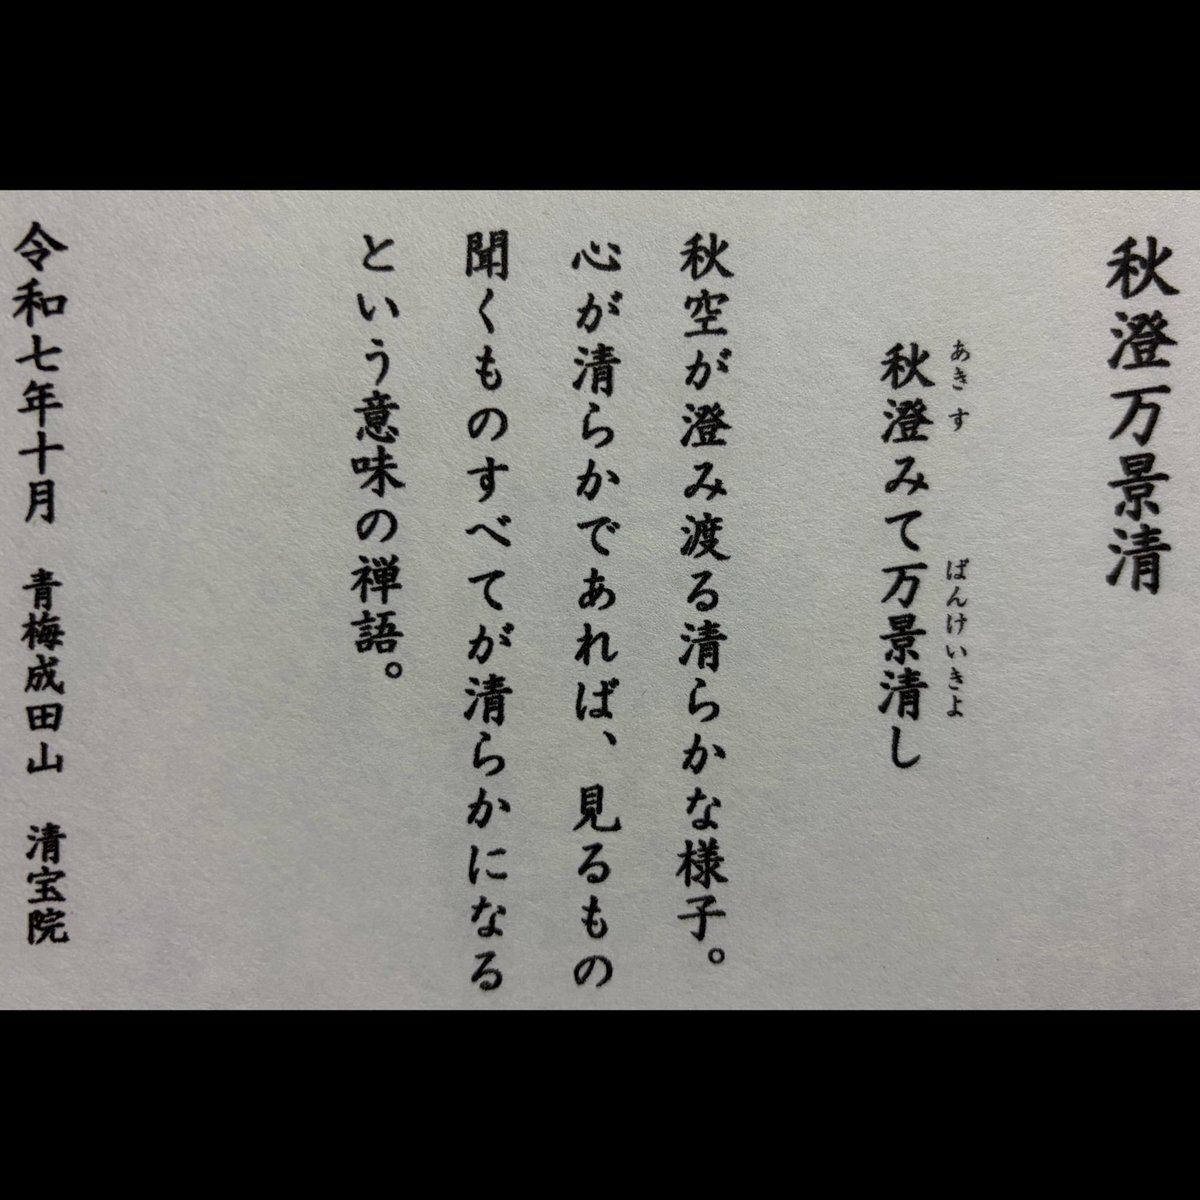 秋澄万景清
秋澄みて万景清し
あきす
ばんけいきよ
秋空が澄み渡る清らかな様子。
心が清らかであれば、見るもの
聞くものすべてが清らかになる
という意味の禅語。
令和七年十月 青梅成田山 清宝院